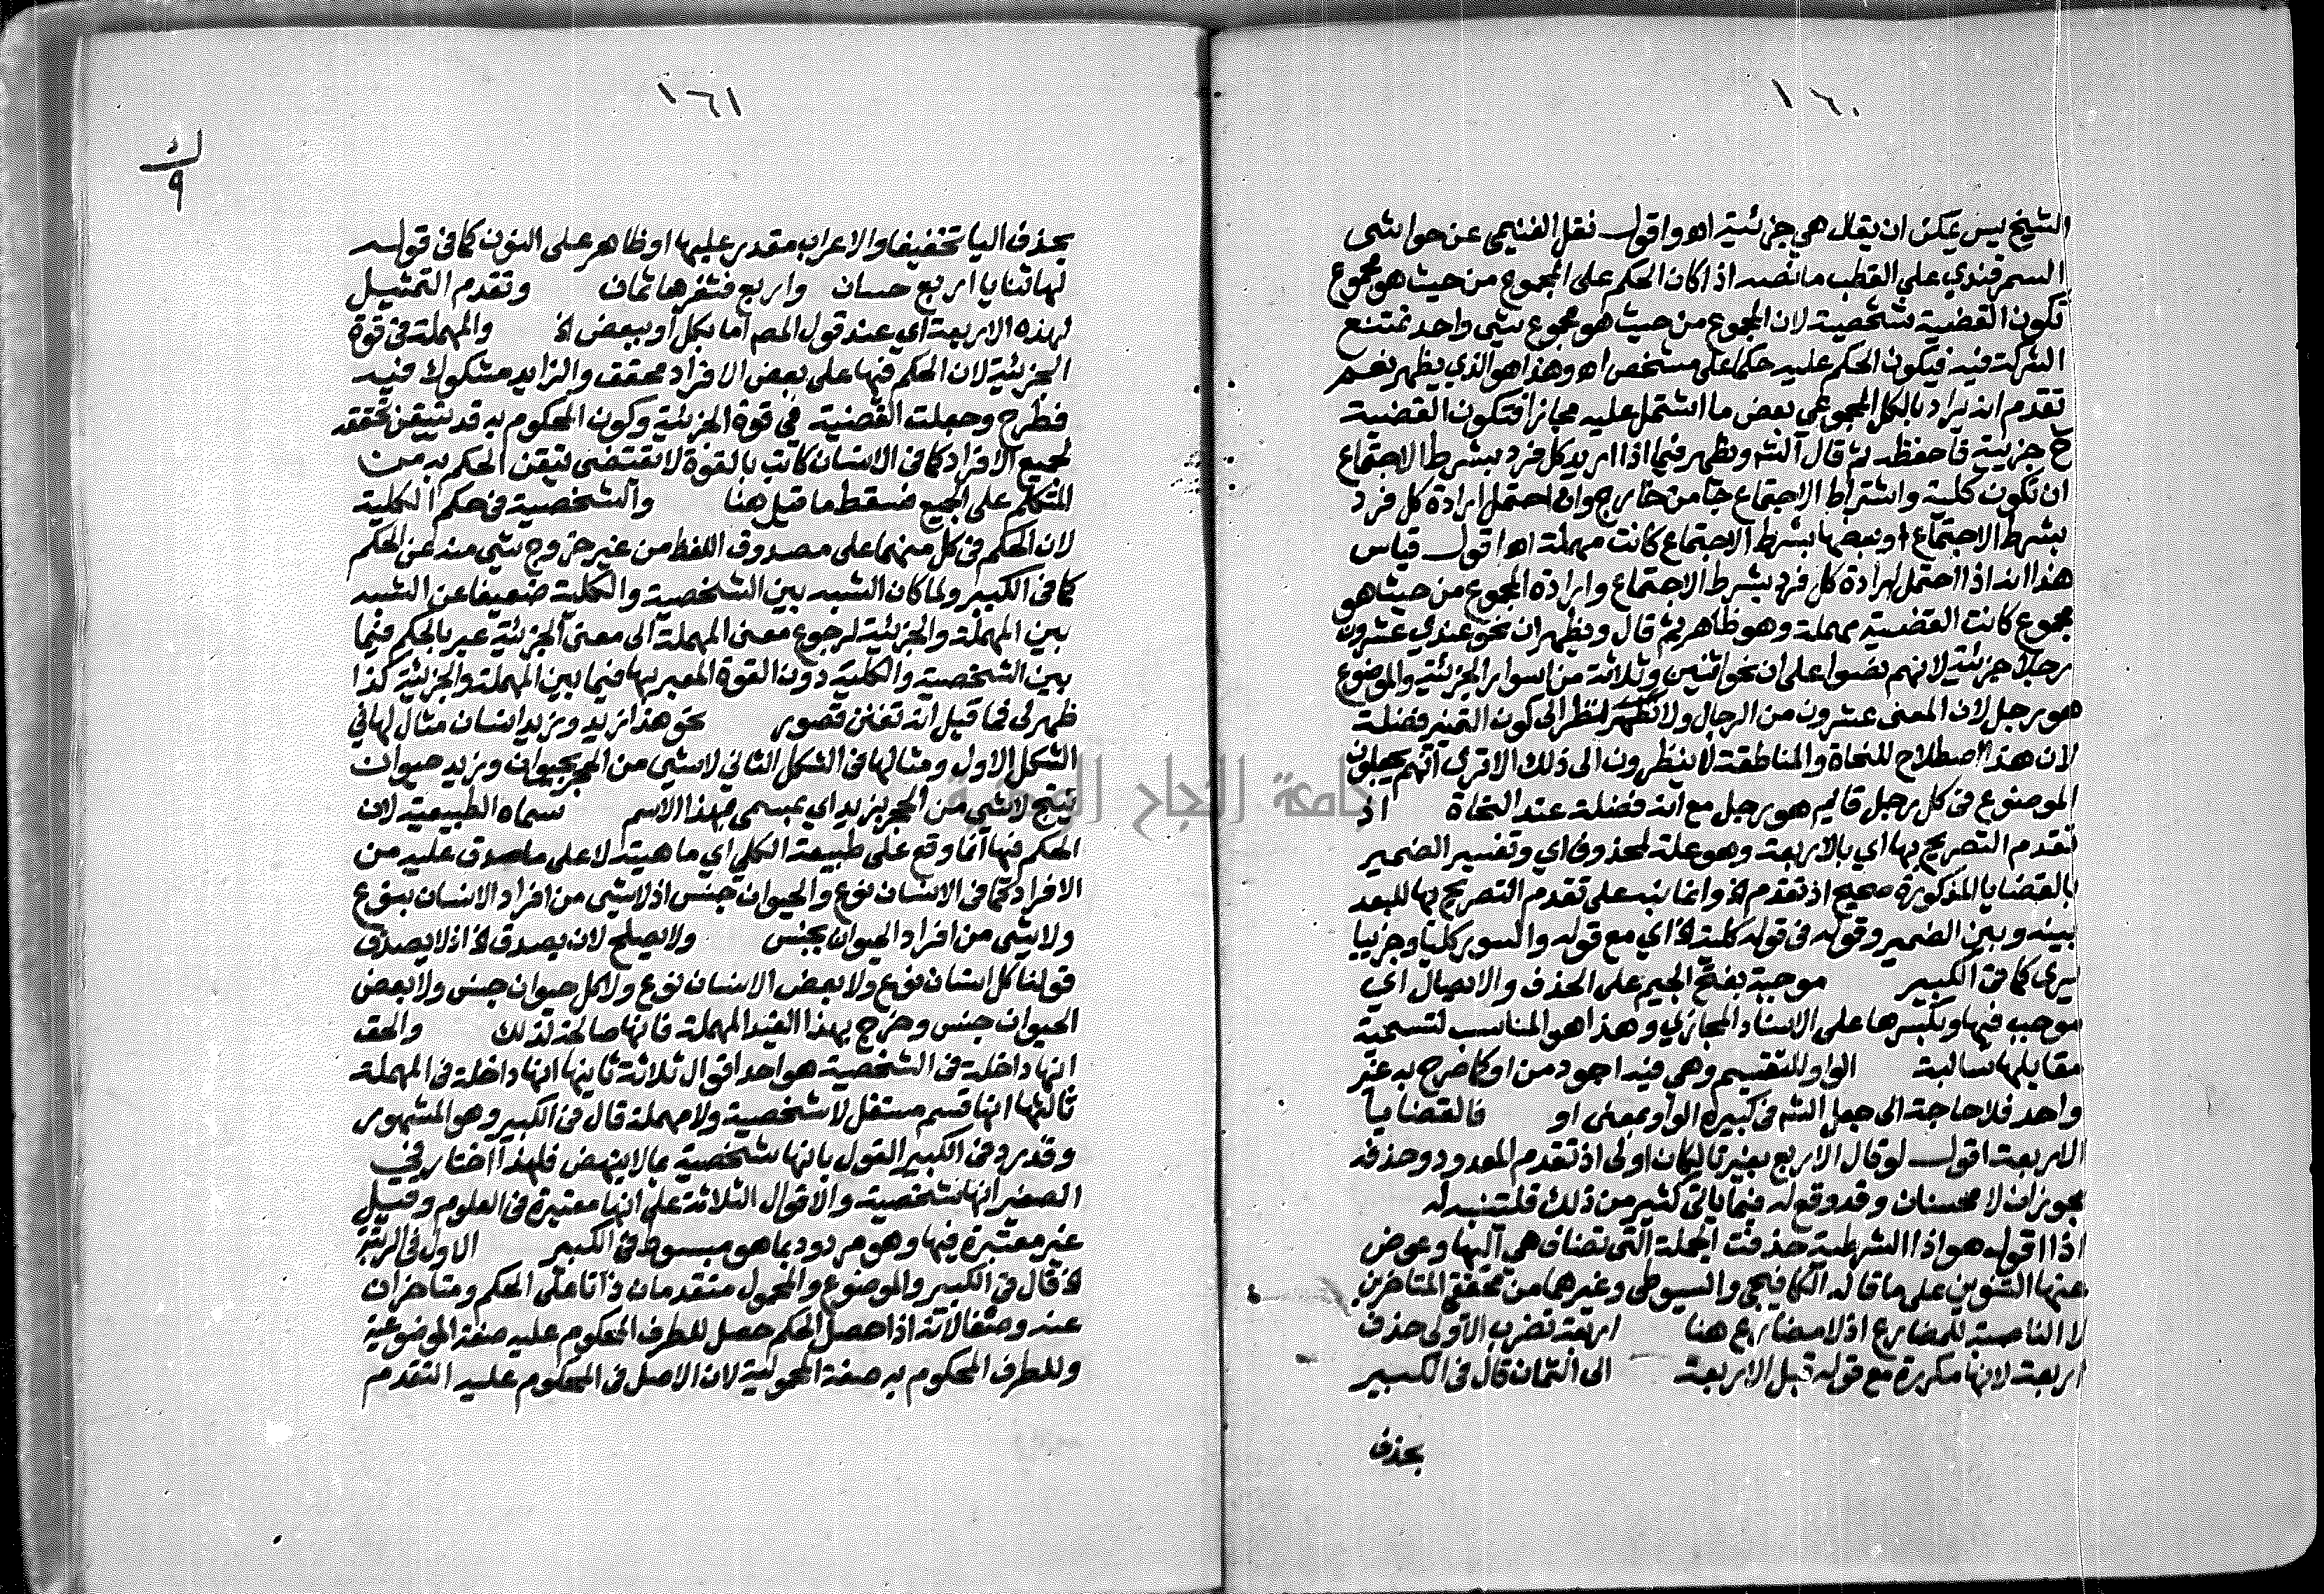 ١٦٠
الشيخ يس يمكن ان يقال هي جزئية اه واقول نقل الغنيمي عن حواشي
السمرقندي على القطب ما نصه اذا كان الحكم على المجموع من حيث هو مجموع
تكون القضية شخصية لان المجموع من حيث هو مجموع شي واحد يمتنع
الشركة فيه فيكون الحكم عليه حكما على مشخص اه وهذا هو الذي يظهر نعم
تقدم انه يراد بالكل المجموعي بعض ما اشتمل عليه مجازا فتكون القضية
ح جزيية فاحفظه ثم قال الش ويظهر فيما اذا اريد كل فرد بشرط الاجتماع
ان تكون كلية واشتراط الاجتماع جا من خارج وان احتمل ارادة كل فرد
بشرط الاجتماع او بعضها بشرط الاجتماع كانت مهملة اه اقول قياس
هذا انه اذا احتمل ارادة كل فرد بشرط الاجتماع وارادة المجموع من حيث هو
مجموع كانت القضية مهملة وهو ظاهر ثم قال ويظهر ان نحو عندي عشرون
رجلا جزئية لانهم نصوا على ان نحو اثنين وثلاثة من اسوار الجزئية والموضوع
هو رجل لان المعنى عشرون من الرجال ولا نظر الى كون التميز فضلة
لان هذا اصطلاح للنحاة والمناطقة لا ينظرون الى ذلك الا ترى انهم يجعلون
الموضوع في كل رجل قايم هو رجل مع انه فضلة عند النحاة اذ
تقدم التصريح بها اي بالاربعة وهو علة لمحذوف اي وتفسير الضمير
بالقضايا المذكورة صحيح اذ تقدم الخ وانما نبه على تقدم التصريح بها للبعد
بينه وبين الضمير وقوله في قوله كلية الخ اي مع قوله والسور كليا وجزييا
يرى كما في الكبير موجبة بفتح الجيم على الحذف والايصال اي
موجب فيها وبكسرها على الاسناد المجازي وهذا هو المناسب لتسمية
مقابلها سالبة الواو للتقسيم وهي فيه اجود من او كما صرح به غير
واحد فلا حاجة الى جعل الش في كبيره الواو بمعنى او فالقضايا
الاربعة اقول لو قال الاربع بغير تا لكان اولى اذ تقدم المعدود وحذفه
مجوزان لا محسنان وقد وقع له فيما ياتي كثير من ذلك فلتنبه له
اذا اقوله هو اذا الشرطية حذفت الجملة التي تضاف هي اليها وعوض
عنها التنوين على ما قاله الكافيجي والسيوطي وغيرهما من محققي المتاخرين
لا الناصبة للمضارع اذ لا مضارع هنا اربعة تضرب الاولى حذف
اربعة لانها مكررة مع قوله قبل الاربعة الى الثمان قال في الكبير
بحذف
١٦١
بحذف اليا تخفيفا والاعراب مقدر عليها او ظاهر على النون كما في قوله
لها ثنايا اربع حسان واربع فثغرها ثمان وتقدم التمثيل
لهذه الاربعة اي عند قول المص اما بكل او ببعض الخ والمهملة في قوة
الجزيئية لان الحكم فيها على بعض الافراد محقق والزايد مشكوك فيه
فطرح وجعلت القضية في قوة الجزئية وكون المحكوم به قد تيقن تحققه
لجميع الافراد كما في الانسان كاتب بالقوة لا يقتضى تيقن الحكم به من
المتكلم على الجميع فسقط ما قيل هنا والشخصية في حكم الكلية
لان الحكم في كل منهما على مصدوق اللفظ من غير خروج شي منه عن الحكم
كما في الكبير ولما كان الشبه بين الشخصية والكلية ضعيفا عن الشبه
بين المهملة والجزئية لرجوع معنى المهملة الى معنى الجزئية عبر بالحكم فيما
بين الشخصية والكلية دون القوة المعبر بها فيما بين المهملة والجزئية كذا
ظهر لي فما قيل انه تفنن قصور نحو هذا زيد وزيد انسان مثال لها في
الشكل الاول ومثالها في الشكل الثاني لا شي من الحجر بحيوان وزيد حيوان
ينتج لا شي من الحجر بزيد اي بمسمى بهذا الاسم تسماه الطبيعية لان
الحكم فيها انما وقع على طبيعة الكلي اي ماهيته لا على ما صدق عليه من
الافراد كما في الانسان نوع والحيوان جنس اذ لا شي من افراد الانسان بنوع
ولا شي من افراد الحيوان بجنس ولا يصلح لان يصدق الخ اذ لا يصدق
قولنا كل انسان نوع ولا بعض الانسان نوع ولا كل حيوان جنس ولا بعض
الحيوان جنس وخرج بهذا القيد المهملة فانها صالحة لذلك والحق
انها داخلة في الشخصية هو احد اقوال ثلاثة ثانيها انها داخلة في المهملة
ثالثها انها قسم مستقل لا شخصية ولا مهملة قال في الكبير وهو المشهور
وقد رد في الكبير القول بانها شخصية بما لا ينهض فلهذا اختار في
الصغير انها شخصية والاقوال الثلاثة على انها معتبرة في العلوم وقيل
غير معتبرة فيها وهو مردود بما هو مبسوط في الكبير الاول في الرتبة
الخ قال في الكبير والموضوع والمحمول متقدمان ذاتا على الحكم ومتاخران
عنه وصفا لانه اذا حصل الحكم حصل للطرف المحكوم عليه صفة الموضوعية
وللطرف المحكوم به صفة المحمولية لان الاصل في المحكوم عليه التقدم